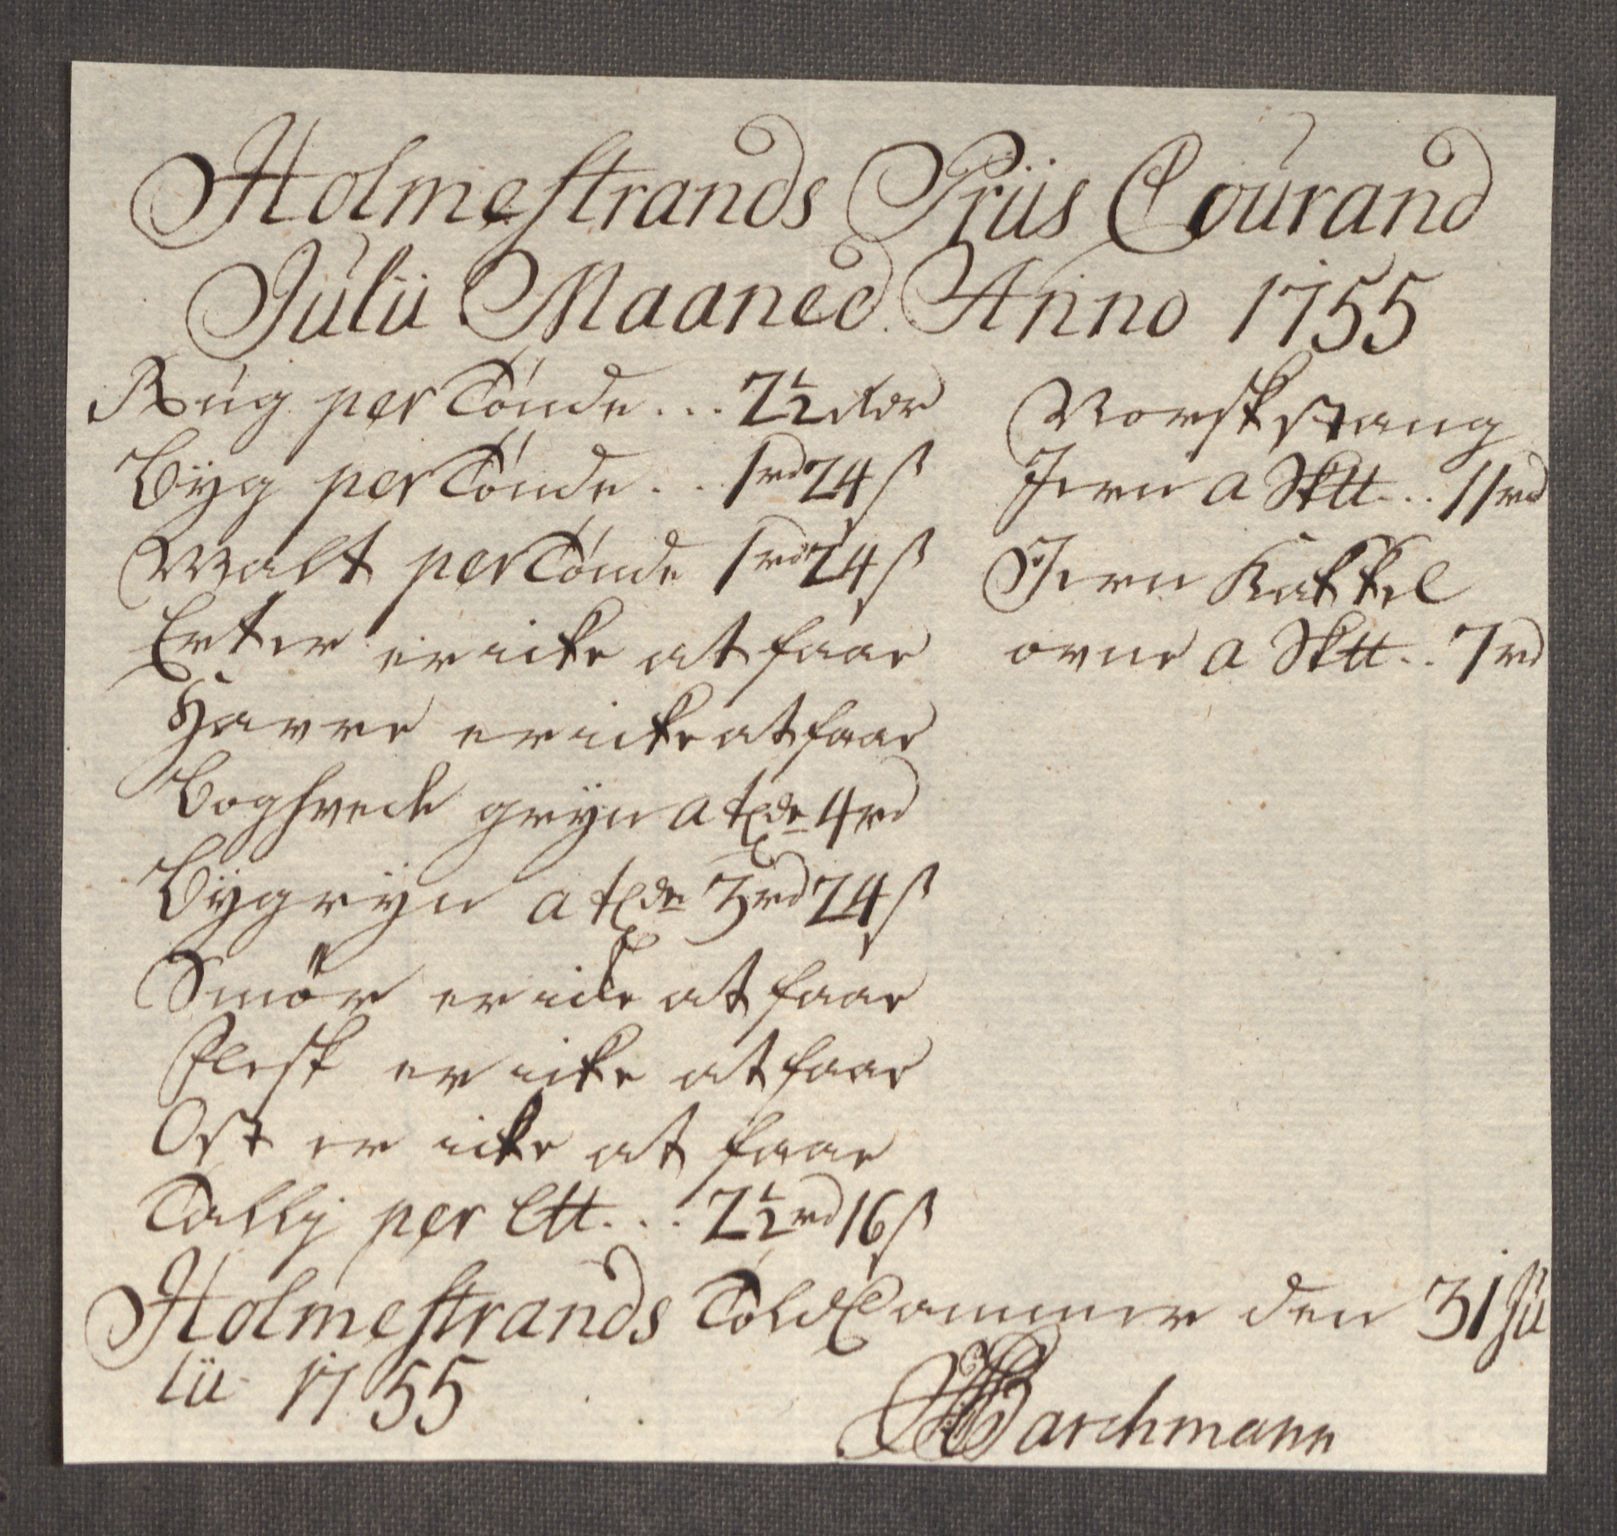 Holmestrands Priis Courand
Julii Maaned Anno 1755
Rug per Tønde ... 2½ Rdr
Byg per Tønde ... 1rd 24 ß
Malt per Tønde 1rd 24 ß
Erter er icke at faae
Havre er icke at faae
Boghvede gryn a tde 4rd
Bygryn a tde 3rd 24 ß
Smør er icke at faae
Flesk er icke at faae
Ost er icke at faae
Tallig per Ltt ... 2½ rd 16 ß
Norsk stang
Jern a Sktt ... 11rd
Jern Kakkel
ovne a Sktt .. 7rd
Holmestrands Told Cammer den 31 Ju
lii 1755
Barchmann